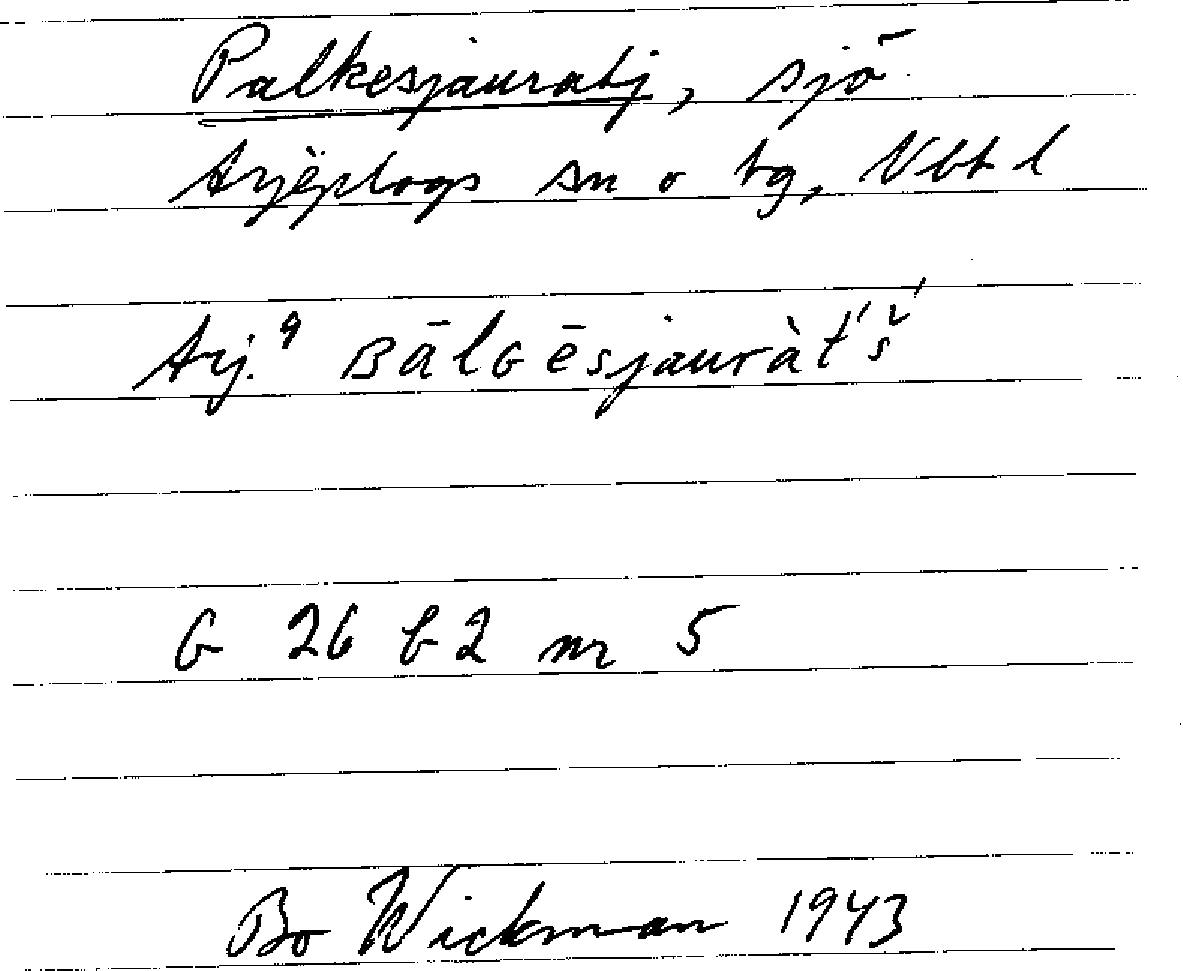 Palkesjauratj, sjö
Arjeplogs sn o tg, Vbtl
Arj.⁹ ʙālɢēsjauràt́'š́
G 26 b 2 nr 5
Bo Wickman 1943